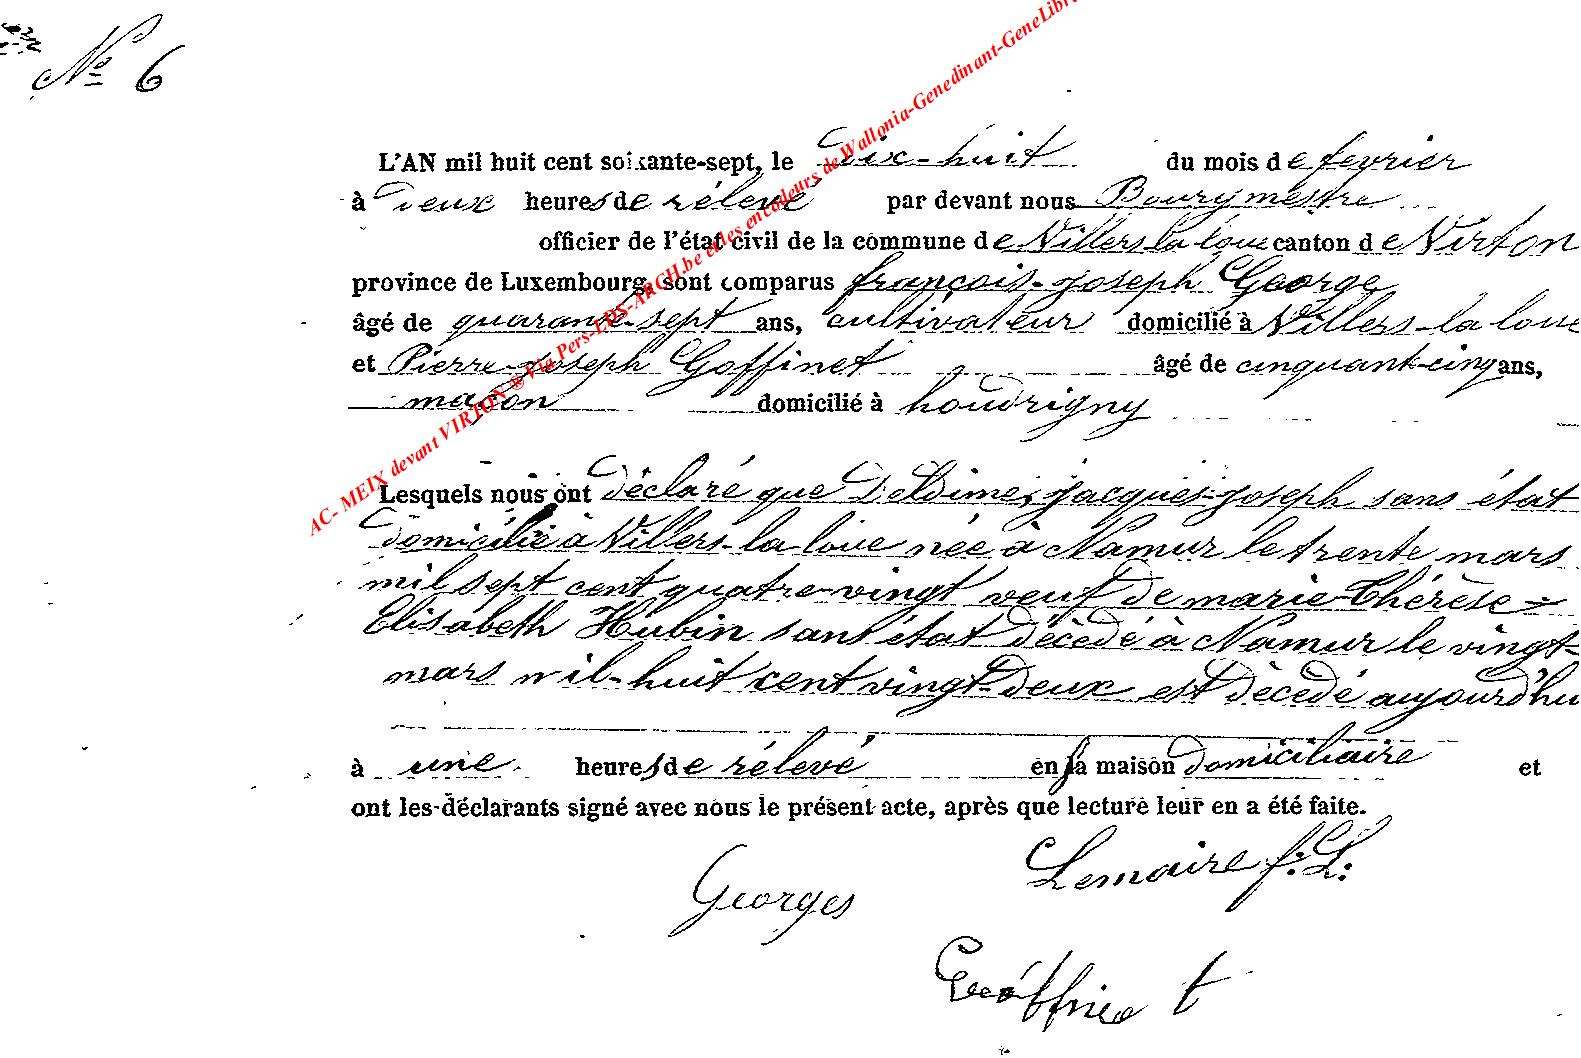 Nº 6
AC- MEIX devant VIRTON ® Via Pers-LDS-ARCH.be et les en couleurs de Wallonia-Genedinant-GeneLibr
L'AN mil huit cent soixante-sept, le dix-huit du mois de fevrier
à deux heures de rélevé par devant nous Bourgmestre
officier de l'état civil de la commune de Villers-la-loue canton de Virton
province de Luxembourg, sont comparus françois-joseph George
âgé de quarante-sept ans, cultivateur domicilié à Villers-la loue
et Pierre-joseph Goffinet âgé de cinquant-cinq ans,
maçon domicilié à houdrigny
Lesquels nous ont déclaré que Deldime, jacques-joseph sans état
domicilié à Villers-la-loue née à Namur le trente mars
mil sept cent quatre-vingt veuf de marie-thérèse
Elisabeth Hubin sans état décédé à Namur le vingt-
mars mil-huit cent vingt-deux est décedé aujourd'hu
à une heures de rélevé en sa maison domiciliaire et
ont les déclarants signé avec nous le présent acte, après que lecture leur en a été faite.
Lemaire f: L:
Georges
Goffinet